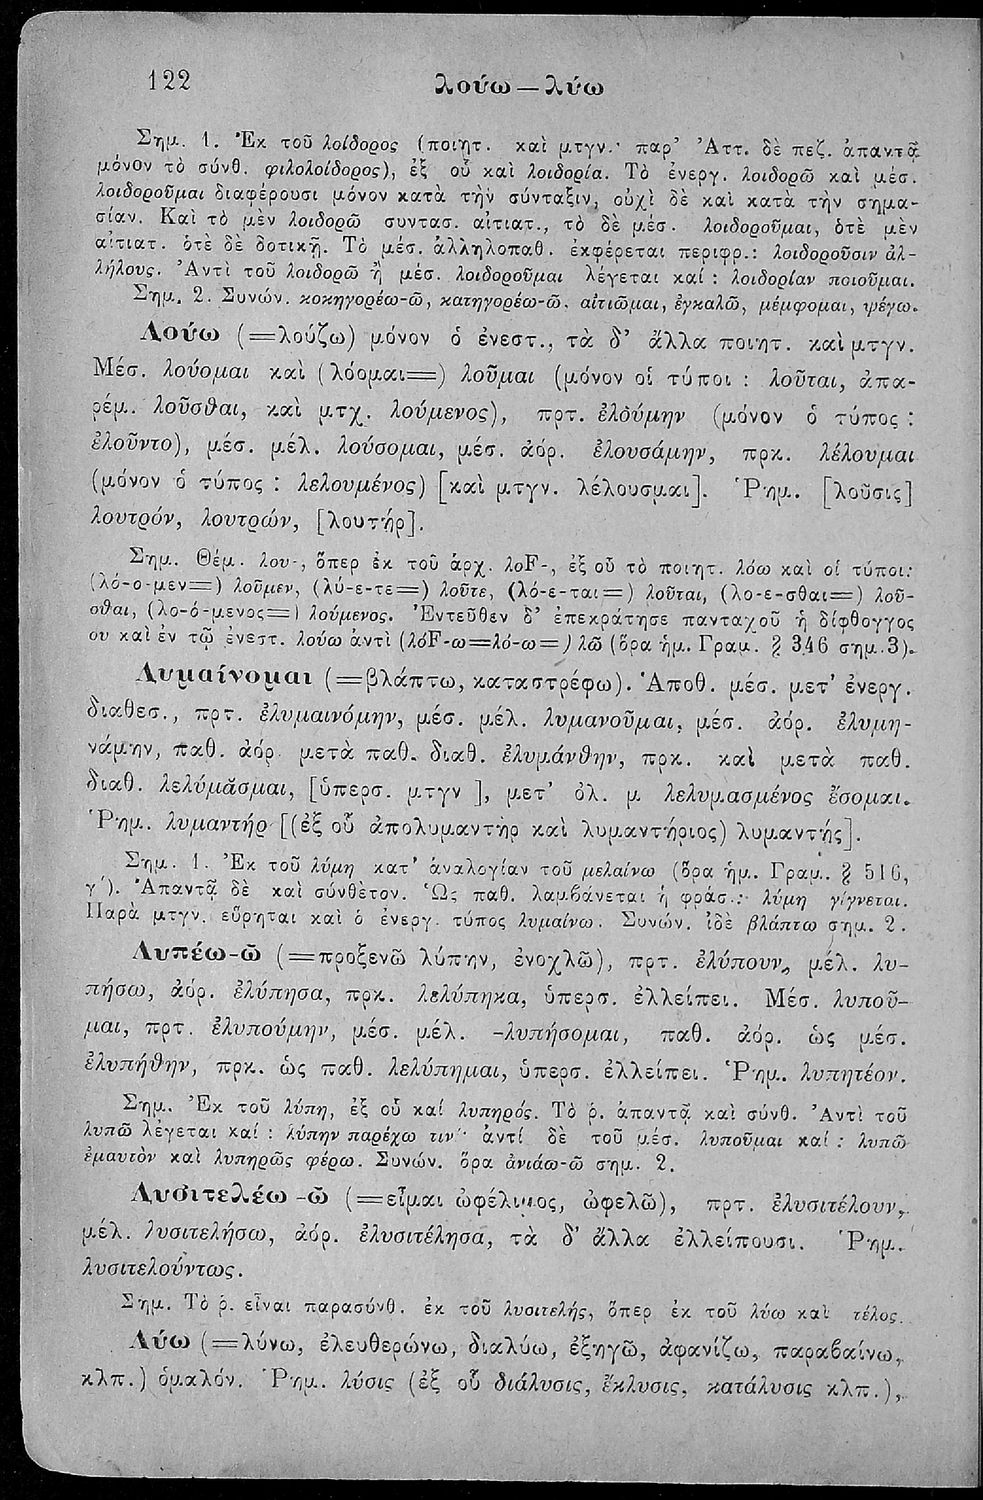 122
λούω — λύω
Σημ. 1. Ἐκ τοῦ λοίδορος (ποιητ. καὶ μτγν.· παρ’ Ἀττ. δὲ πεζ. ἀπαντᾷ
μόνον τὸ σύνθ. φιλολοίδορος), ἐξ οὗ καὶ λοιδορία. Τὸ ἐνεργ. λοιδορῶ καὶ μέσ.
λοιδοροῦμαι διαφέρουσι μόνον κατὰ τὴν σύνταξιν, οὐχὶ δὲ καὶ κατὰ τὴν σημα-
σίαν. Καὶ τὸ μὲν λοιδορῶ συντασ. αἰτιατ., τὸ δὲ μέσ. λοιδοροῦμαι, ὁτὲ μὲν
αἰτιατ. ὁτὲ δὲ δοτικῇ. Τὸ μέσ. ἀλληλοπαθ. ἐκφέρεται περιφρ.: λοιδοροῦσιν ἀλ-
λήλους. Ἀντὶ τοῦ λοιδορῶ ἢ μέσ. λοιδοροῦμαι λέγεται καί : λοιδορίαν ποιοῦμαι.
Σημ. 2. Συνών. κοκηγορέω-ῶ, κατηγορέω-ῶ, αἰτιῶμαι, ἐγκαλῶ, μέμφομαι, ψέγω.
Λούω (=λούζω) μόνον ὁ ἐνεστ., τὰ δ’ ἄλλα ποιητ. καὶ μτγν.
Μέσ. λούομαι καὶ (λόομαι=) λοῦμαι (μόνον οἱ τύποι : λοῦται, ἀπα-
ρέμ. λοῦσθαι, καὶ μτχ. λούμενος), πρτ. ἐλούμην (μόνον ὁ τύπος :
ἐλοῦντο), μέσ. μέλ. λούσομαι, μέσ. ἀόρ. ἐλουσάμην, πρκ. λέλουμαι
(μόνον ὁ τύπος : λελουμένος) [καὶ μτγν. λέλουσμαι]. Ῥημ. [λοῦσις]
λουτρόν, λουτρών, [λουτήρ].
Σημ. Θέμ. λου-, ὅπερ ἐκ τοῦ ἀρχ. λοF-, ἐξ οὗ τὸ ποιητ. λόω καὶ οἱ τύποι:
(λό-ο-μεν=) λοῦμεν, (λύ-ε-τε=) λοῦτε, (λό-ε-ται=) λοῦται, (λο-ε-σθαι=) λοῦ-
σθαι, (λο-ό-μενος=) λούμενος. Ἐντεῦθεν δ’ ἐπεκράτησε πανταχοῦ ἡ δίφθογγος
ου καὶ ἐν τῷ ἐνεστ. λούω ἀντὶ (λόF-ω=λό-ω=) λῶ (ὅρα ἡμ. Γραμ. § 346 σημ. 3).
Λυμαίνομαι (=βλάπτω, καταστρέφω). Ἀποθ. μέσ. μετ’ ἐνεργ.
διαθεσ., πρτ. ἐλυμαινόμην, μέσ. μέλ. λυμανοῦμαι, μέσ. ἀόρ. ἐλυμη-
νάμην, παθ. ἀόρ. μετὰ παθ. διαθ. ἐλυμάνθην, πρκ. καὶ μετὰ παθ.
διαθ. λελύμασμαι, [ὑπερσ. μτγν ], μετ’ ὀλ. μ λελυμασμένος ἔσομαι.
Ῥημ. λυμαντήρ [(ἐξ οὗ ἀπολυμαντὴρ καὶ λυμαντήριος) λυμαντής].
Σημ. 1. Ἐκ τοῦ λύμη κατ’ ἀναλογίαν τοῦ μελαίνω (ὅρα ἡμ. Γραμ. § 516,
γ΄). Ἀπαντᾷ δὲ καὶ σύνθετον. Ὡς παθ. λαμβάνεται ἡ φράσ.: λύμη γίγνεται.
Παρὰ μτγν. εὕρηται καὶ ὁ ἐνεργ. τύπος λυμαίνω. Συνών. ἰδὲ βλάπτω σημ. 2.
Λυπέω-ῶ (=προξενῶ λύπην, ἐνοχλῶ), πρτ. ἐλύπουν, μέλ. λυ-
πήσω, ἀόρ. ἐλύπησα, πρκ. λελύπηκα, ὑπερσ. ἐλλείπει. Μέσ. λυποῦ-
μαι, πρτ. ἐλυπούμην, μέσ. μέλ. -λυπήσομαι, παθ. ἀόρ. ὡς μέσ.
ἐλυπήθην, πρκ. ὡς παθ. λελύπημαι, ὑπερσ. ἐλλείπει. Ῥημ. λυπητέον.
Σημ. Ἐκ τοῦ λύπη, ἐξ οὗ καί λυπηρός. Τὸ ῥ. ἀπαντᾷ καὶ σύνθ. Ἀντὶ τοῦ
λυπῶ λέγεται καί : λύπην παρέχω τιν΄· ἀντί δὲ τοῦ μέσ. λυποῦμαι καί : λυπῶ
ἐμαυτὸν καὶ λυπηρῶς φέρω. Συνών. ὅρα ἀνιάω-ῶ σημ. 2.
Λυσιτελέω-ῶ (=εἶμαι ὠφέλιμος, ὠφελῶ), πρτ. ἐλυσιτέλουν,
μέλ. λυσιτελήσω, ἀόρ. ἐλυσιτέλησα, τὰ δ’ ἄλλα ἐλλείπουσι. Ῥημ.
λυσιτελούντως.
Σημ. Τὸ ῥ. εἶναι παρασύνθ. ἐκ τοῦ λυσιτελής, ὅπερ ἐκ τοῦ λύω καὶ τέλος.
Λύω (=λύνω, ἐλευθερώνω, διαλύω, ἐξηγῶ, ἀφανίζω, παραβαίνω,
κλπ.) ὁμαλόν. Ῥημ. λύσις (ἐξ οὗ διάλυσις, ἔκλυσις, κατάλυσις κλπ.),